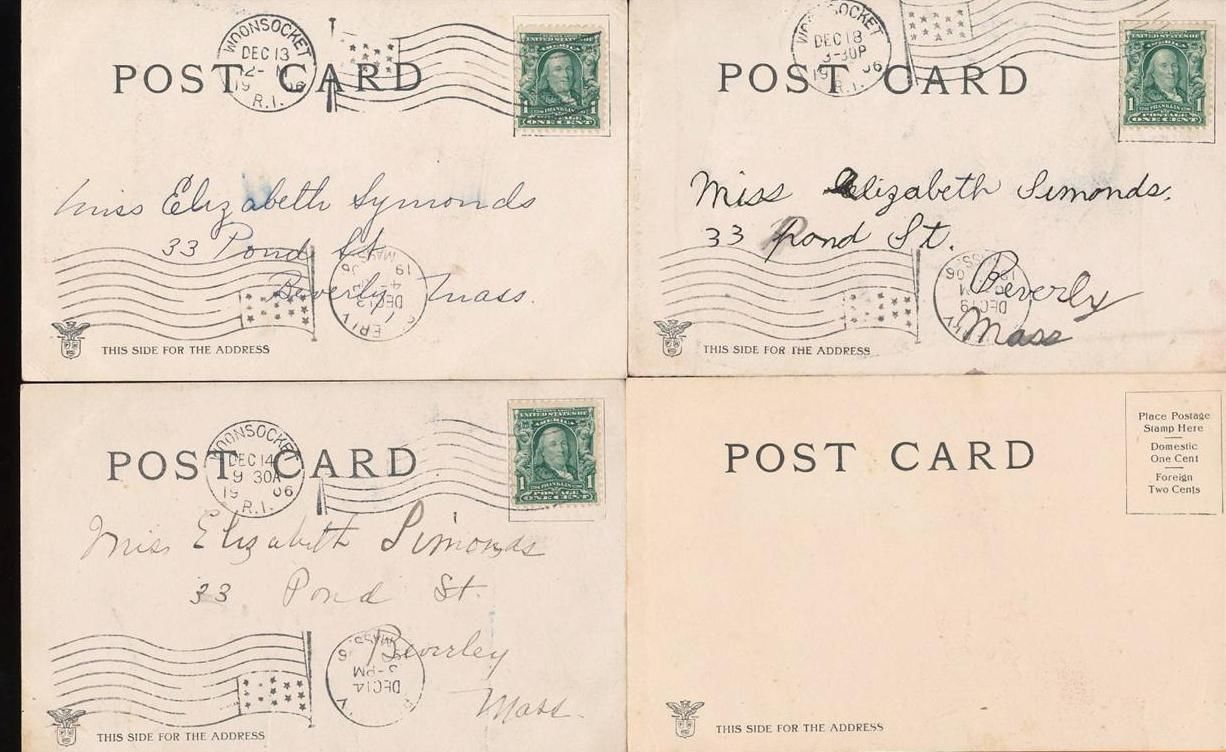 WOONSOCKET
DEC 13
19 06
R.I.
POST CARD
UNITED STATES OF
AMERICA
1 FRANKLIN 1
POSTAGE
ONE CENT
Miss Elizabeth Symonds
33 Pond St.
Beverly Mass.
MASS.
19 06
DEC 13
THIS SIDE FOR THE ADDRESS
WOONSOCKET
DEC 18
3-30P
19 06
R.I.
POST CARD
UNITED STATES OF
AMERICA
1 FRANKLIN 1
POSTAGE
ONE CENT
Miss Elizabeth Simonds.
33 Pond St.
Beverly
Mass
DEC 19
THIS SIDE FOR THE ADDRESS
WOONSOCKET
DEC 14
9 30A
19 06
R.I.
POST CARD
UNITED STATES OF
AMERICA
1 FRANKLIN 1
POSTAGE
ONE CENT
Miss Elizabeth Simonds
33 Pond St.
Beverley
Mass.
MASS.
3-PM
DEC 14
THIS SIDE FOR THE ADDRESS
POST CARD
Place Postage
Stamp Here
Domestic
One Cent
Foreign
Two Cents
THIS SIDE FOR THE ADDRESS